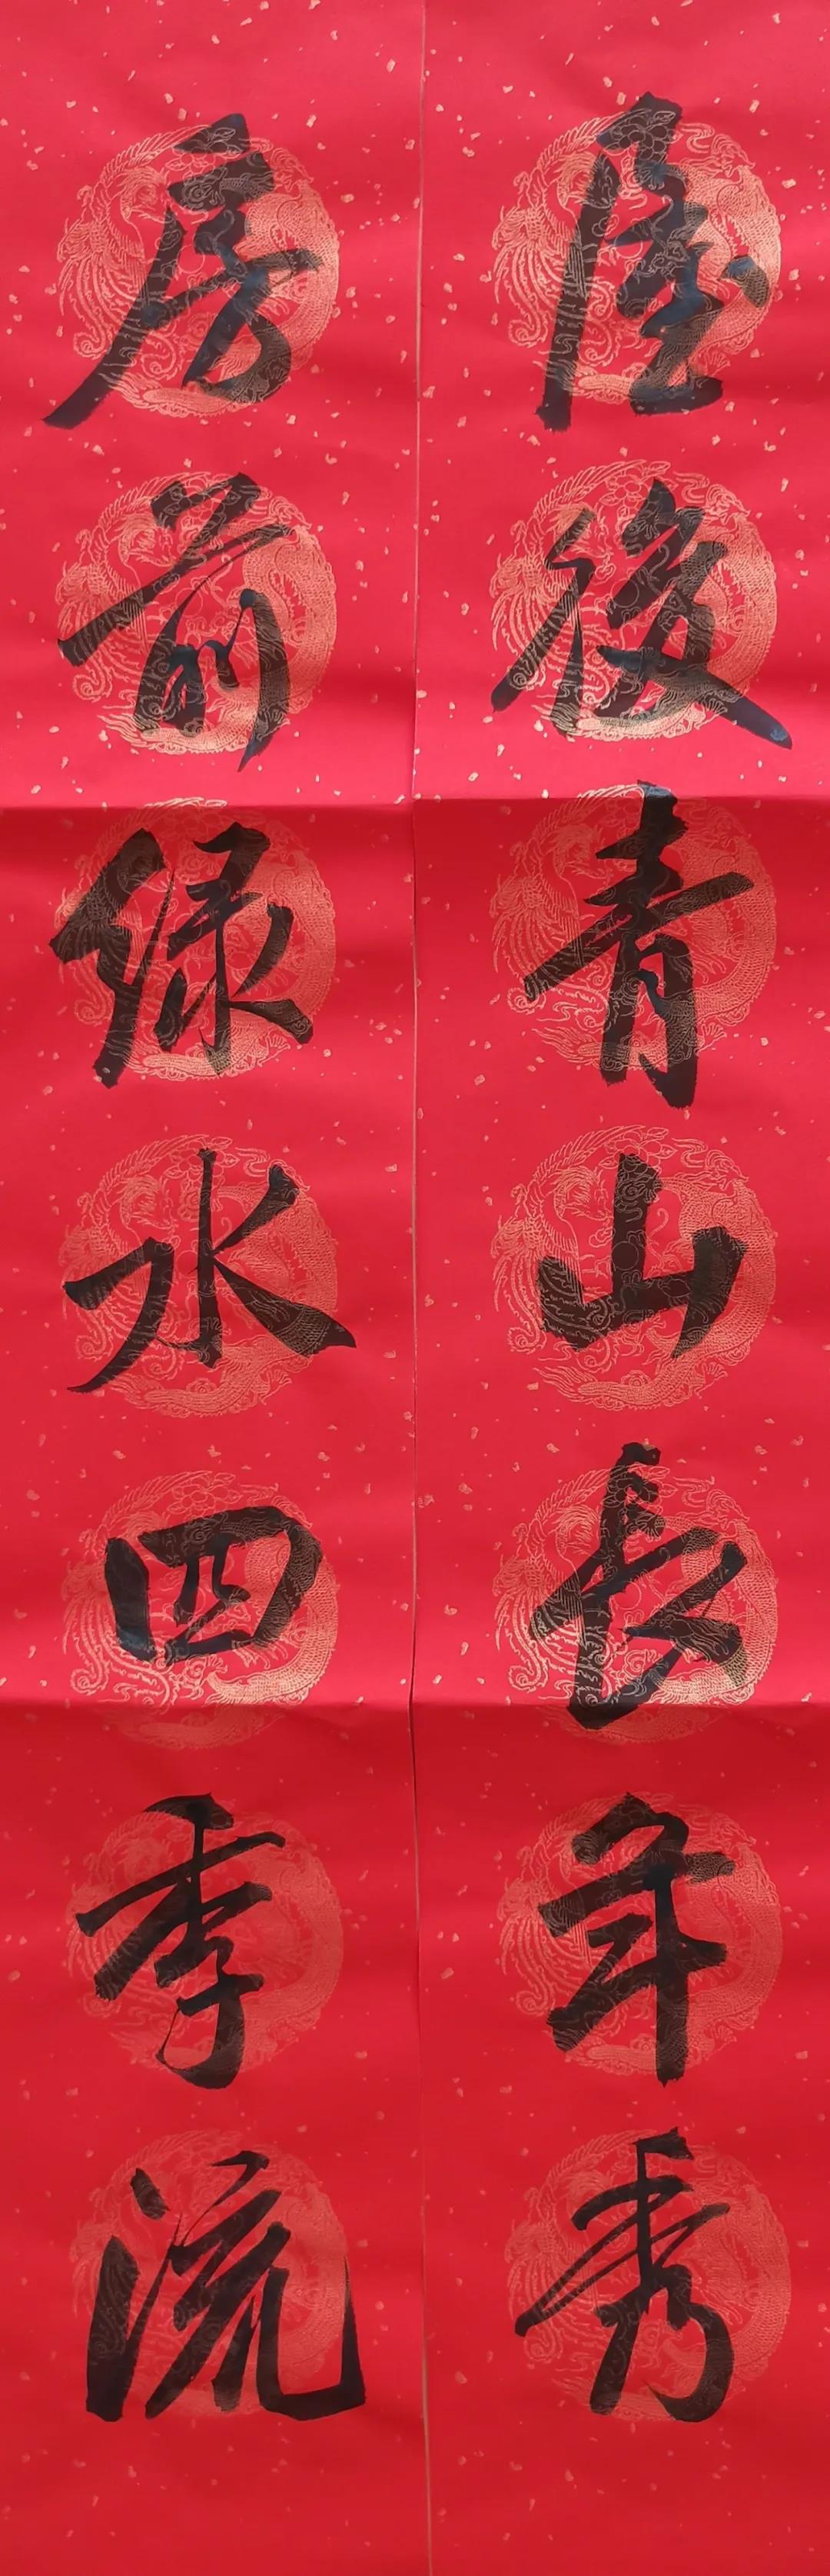 屋後青山長年秀
房前绿水四季流